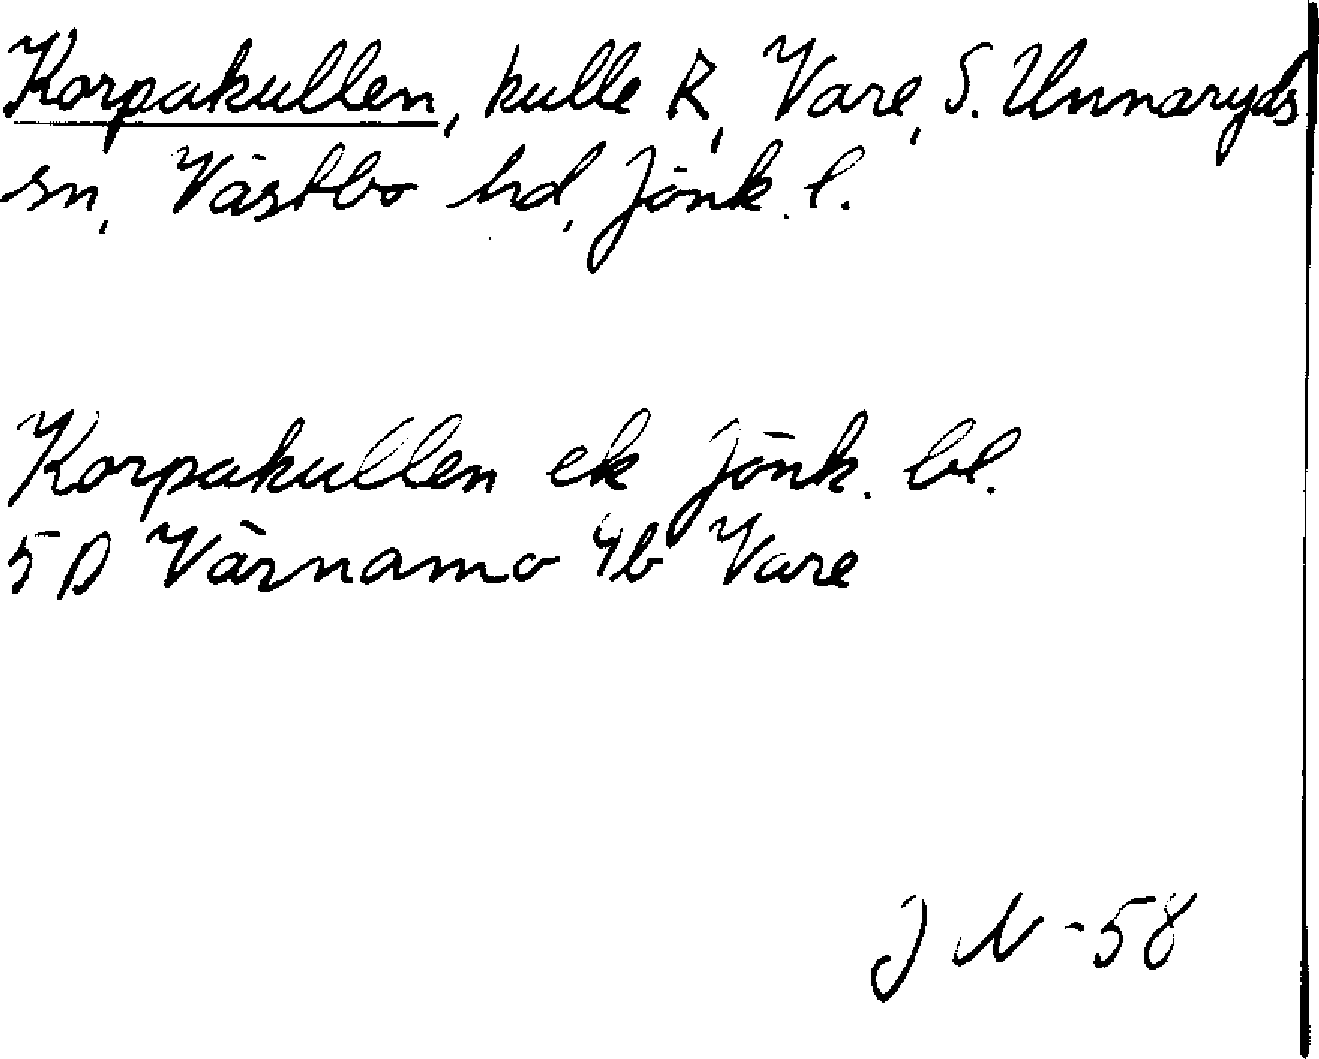 Korpakullen, kulle R, Vare, S. Unnaryds
sn, Västbo hd, Jönk. l.
Korpakullen ek Jönk. bl.
5D Värnamo 4b Vare
J N -58